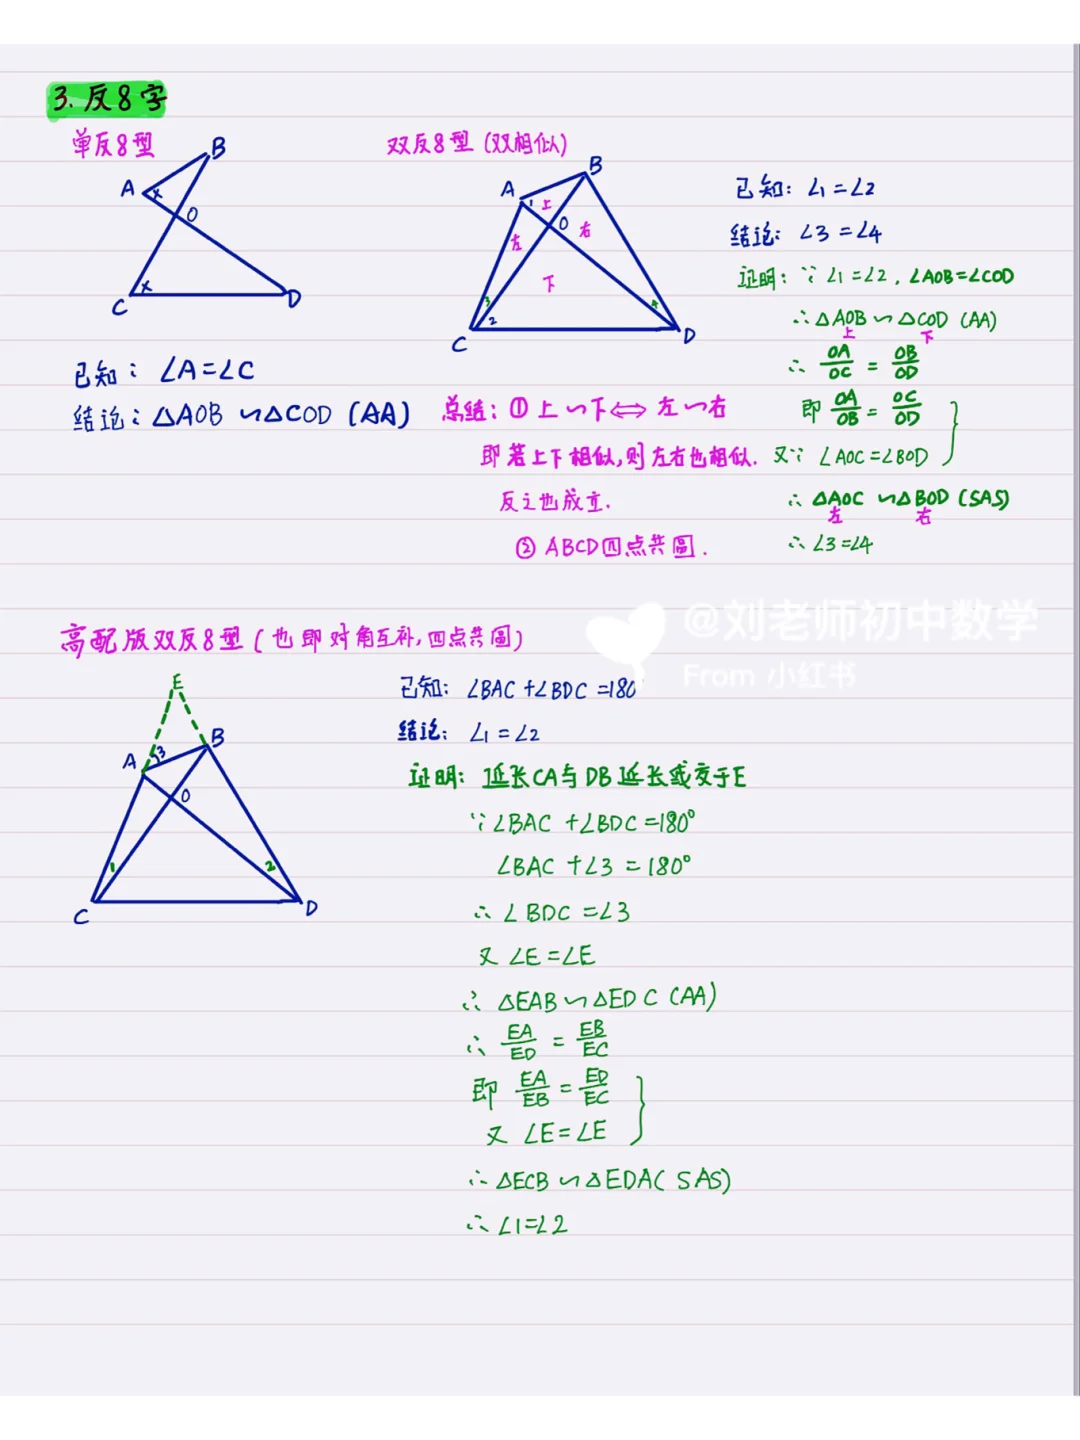 3. 反8字
单反8型
B
A
x
O
x
C
D
已知：∠A=∠C
结论：△AOB∽△COD (AA)
双反8型 (双相似)
B
A
1
上
O
右
左
下
3
2
4
C
D
已知：∠1=∠2
结论：∠3=∠4
证明：∵∠1=∠2，∠AOB=∠COD
∴△AOB∽△COD (AA)
上 下
∴ OA/OC = OB/OD
即 OA/OB = OC/OD
又∵ ∠AOC=∠BOD
∴ △AOC∽△BOD (SAS)
左 右
∴ ∠3=∠4
总结：① 上∽下⇔左∽右
即若上下相似，则左右也相似.
反之也成立.
② ABCD四点共圆.
@刘老师初中数学
From 小红书
高配版双反8型 (也即对角互补，四点共圆)
E
A
3
B
O
1
2
C
D
已知：∠BAC+∠BDC=180
结论：∠1=∠2
证明：延长CA与DB延长线交于E
∵∠BAC+∠BDC=180°
∠BAC+∠3=180°
∴ ∠BDC=∠3
又 ∠E=∠E
∴ △EAB∽△EDC (AA)
∴ EA/ED = EB/EC
即 EA/EB = ED/EC
又 ∠E=∠E
∴△ECB∽△EDA(SAS)
∴ ∠1=∠2